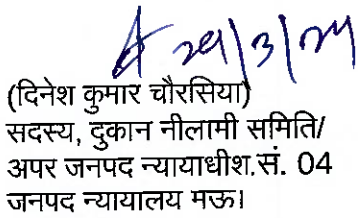 29/3/24
(दिनेश कुमार चौरसिया)
सदस्य, दुकान नीलामी समिति/
अपर जनपद न्यायाधीश.सं. 04
जनपद न्यायालय मऊ।